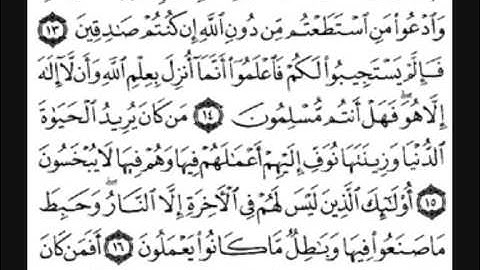 وَٱدْعُوا۟ مَنِ ٱسْتَطَعْتُم مِّن دُونِ ٱللَّهِ إِن كُنتُمْ صَـٰدِقِينَ ١٣
فَإِلَّمْ يَسْتَجِيبُوا۟ لَكُمْ فَٱعْلَمُوٓا۟ أَنَّمَآ أُنزِلَ بِعِلْمِ ٱللَّهِ وَأَن لَّآ إِلَـٰهَ
إِلَّا هُوَ ۖ فَهَلْ أَنتُم مُّسْلِمُونَ ١٤ مَن كَانَ يُرِيدُ ٱلْحَيَوٰةَ
ٱلدُّنْيَا وَزِينَتَهَا نُوَفِّ إِلَيْهِمْ أَعْمَـٰلَهُمْ فِيهَا وَهُمْ فِيهَا لَا يُبْخَسُونَ
١٥ أُو۟لَـٰٓئِكَ ٱلَّذِينَ لَيْسَ لَهُمْ فِى ٱلْـَٔاخِرَةِ إِلَّا ٱلنَّارُ ۖ وَحَبِطَ
مَا صَنَعُوا۟ فِيهَا وَبَـٰطِلٌ مَّا كَانُوا۟ يَعْمَلُونَ ١٦ أَفَمَن كَانَ